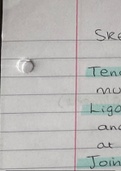 Ske
Tend
mu
Liga
and
at
Join